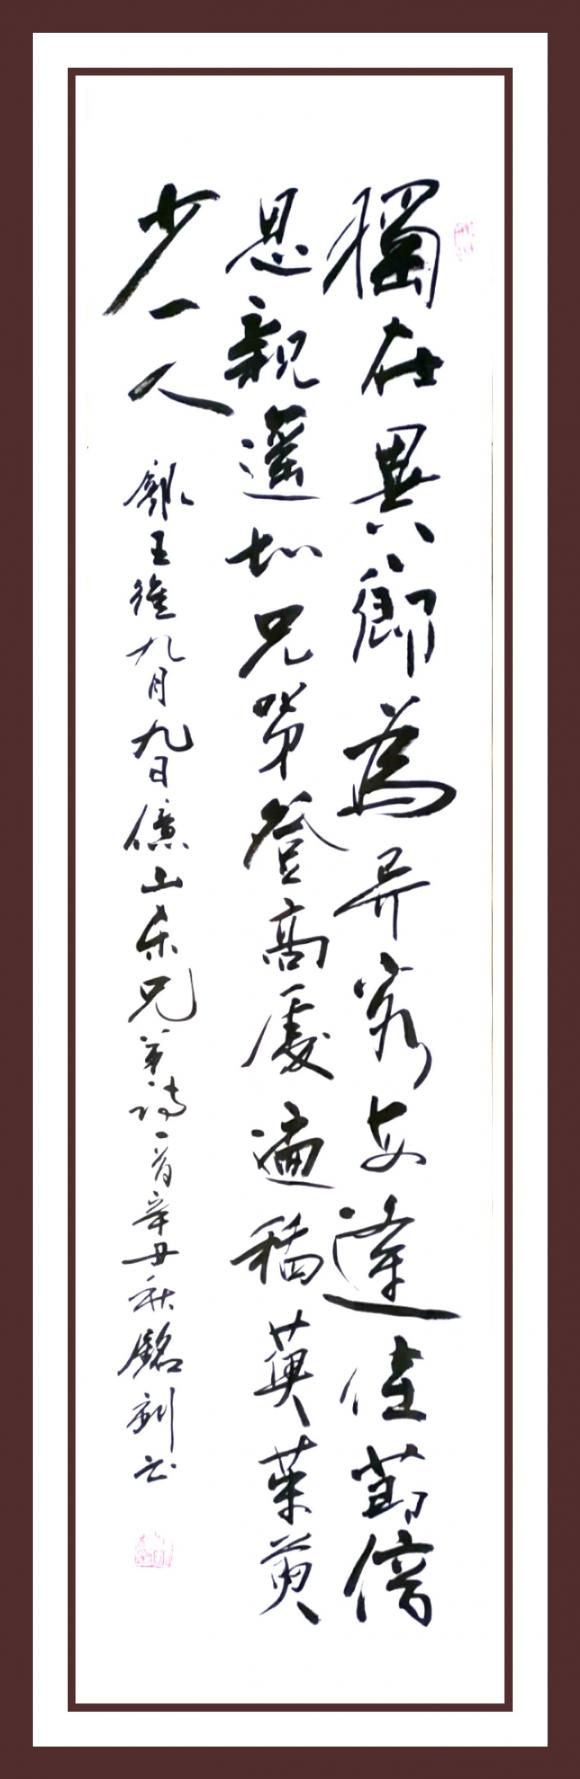 獨在異鄉為异客每逢佳節倍
思親遥知兄弟登高處遍插萸茱萸
少一人 錄王維九月九日億山东兄弟诗一首辛丑秋銘书